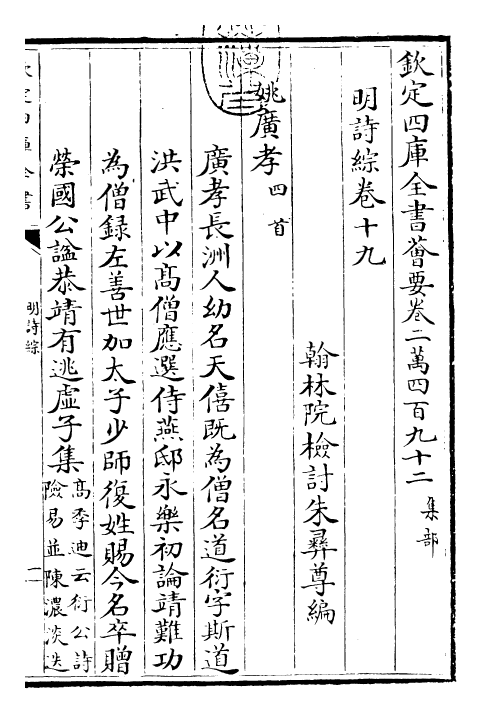 欽定四庫全書薈要卷二萬四百九十二 集部
明詩綜卷十九
翰林院檢討朱彝尊編
姚廣孝 四首
廣孝長洲人幼名天僖既為僧名道衍字斯道
洪武中以高僧應選侍燕邸永樂初論靖難功
為僧録左善世加太子少師復姓賜今名卒贈
榮國公諡恭靖有逃虛子集 高季迪云衍公詩
險易並陳濃淡迭
欽定四庫全書
明詩綜
一